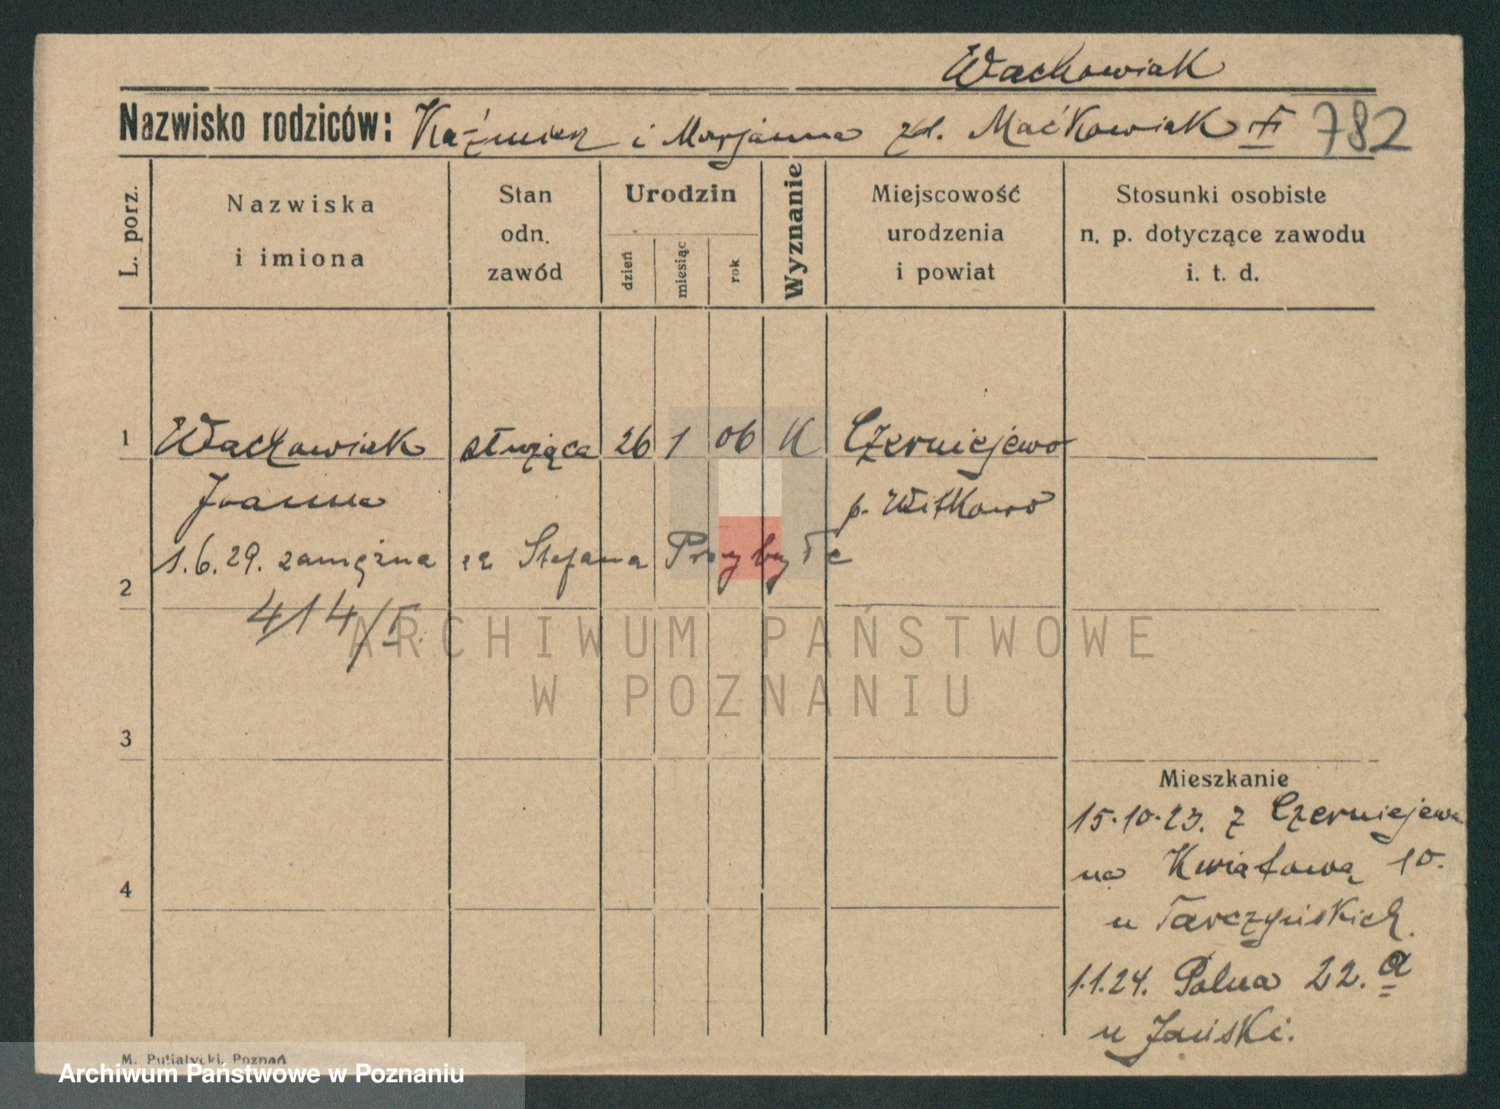 Wachowiak
Nazwisko rodziców: Kaźmierz i Marjanna zd. Maćkowiak 782
L. porz.
Nazwiska
i imiona
Stan
odn.
zawód
Urodzin
dzień
miesiąc
rok
Wyznanie
Miejscowość
urodzenia
i powiat
Stosunki osobiste
n. p. dotyczące zawodu
i. t. d.
1 Wachowiak służąca 26 1 06 K Czerniejewo
Joanna p. Witkowo
1.6.29. zamężna za Stefana Przybyłę
2
414/I.
ARCHIWUM PAŃSTWOWE
W POZNANIU
3
Mieszkanie
15.10.23. z Czerniejewa
na Kwiatową 10.
4
u Tarczyńskich.
1.1.24. Polna 22. a
u
M. Putiatycki, Poznań
Archiwum Państwowe w Poznaniu